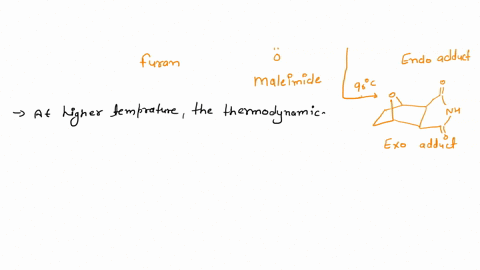 furan
Ö
maleimide
90°C
Endo adduct
O
O
NH
O
Exo adduct
→ At higher temprature, the thermodynamic.